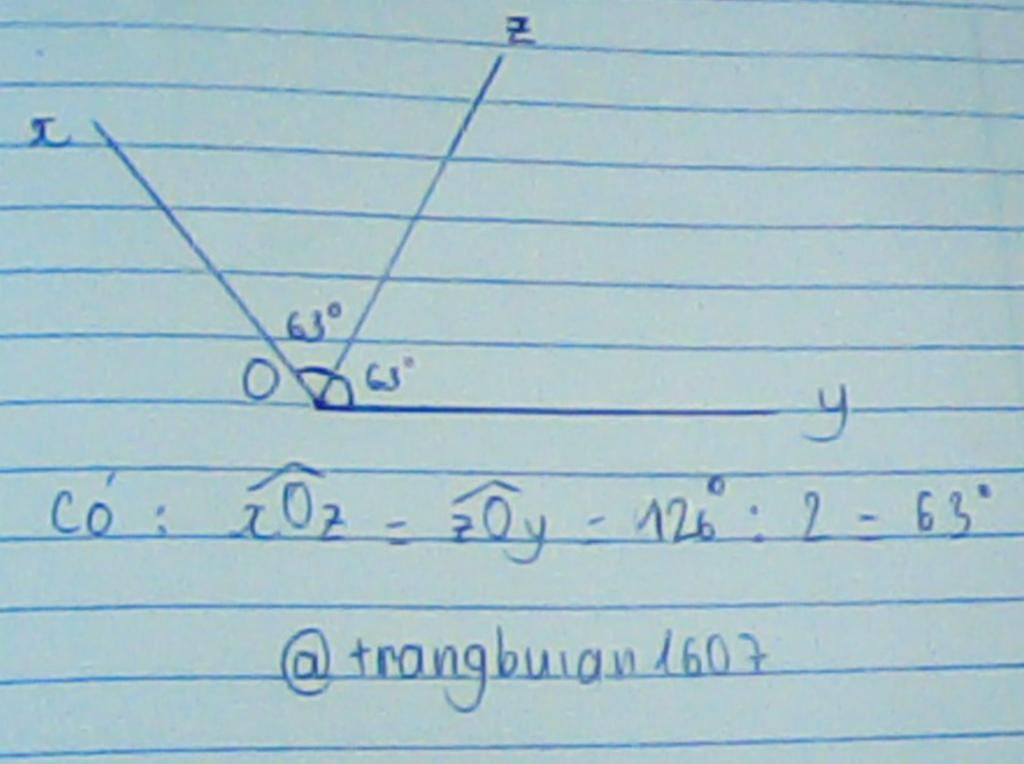 z
x
63°
O
63°
y
Có : xOz = zOy = 126° : 2 = 63°
@trangbuian1607